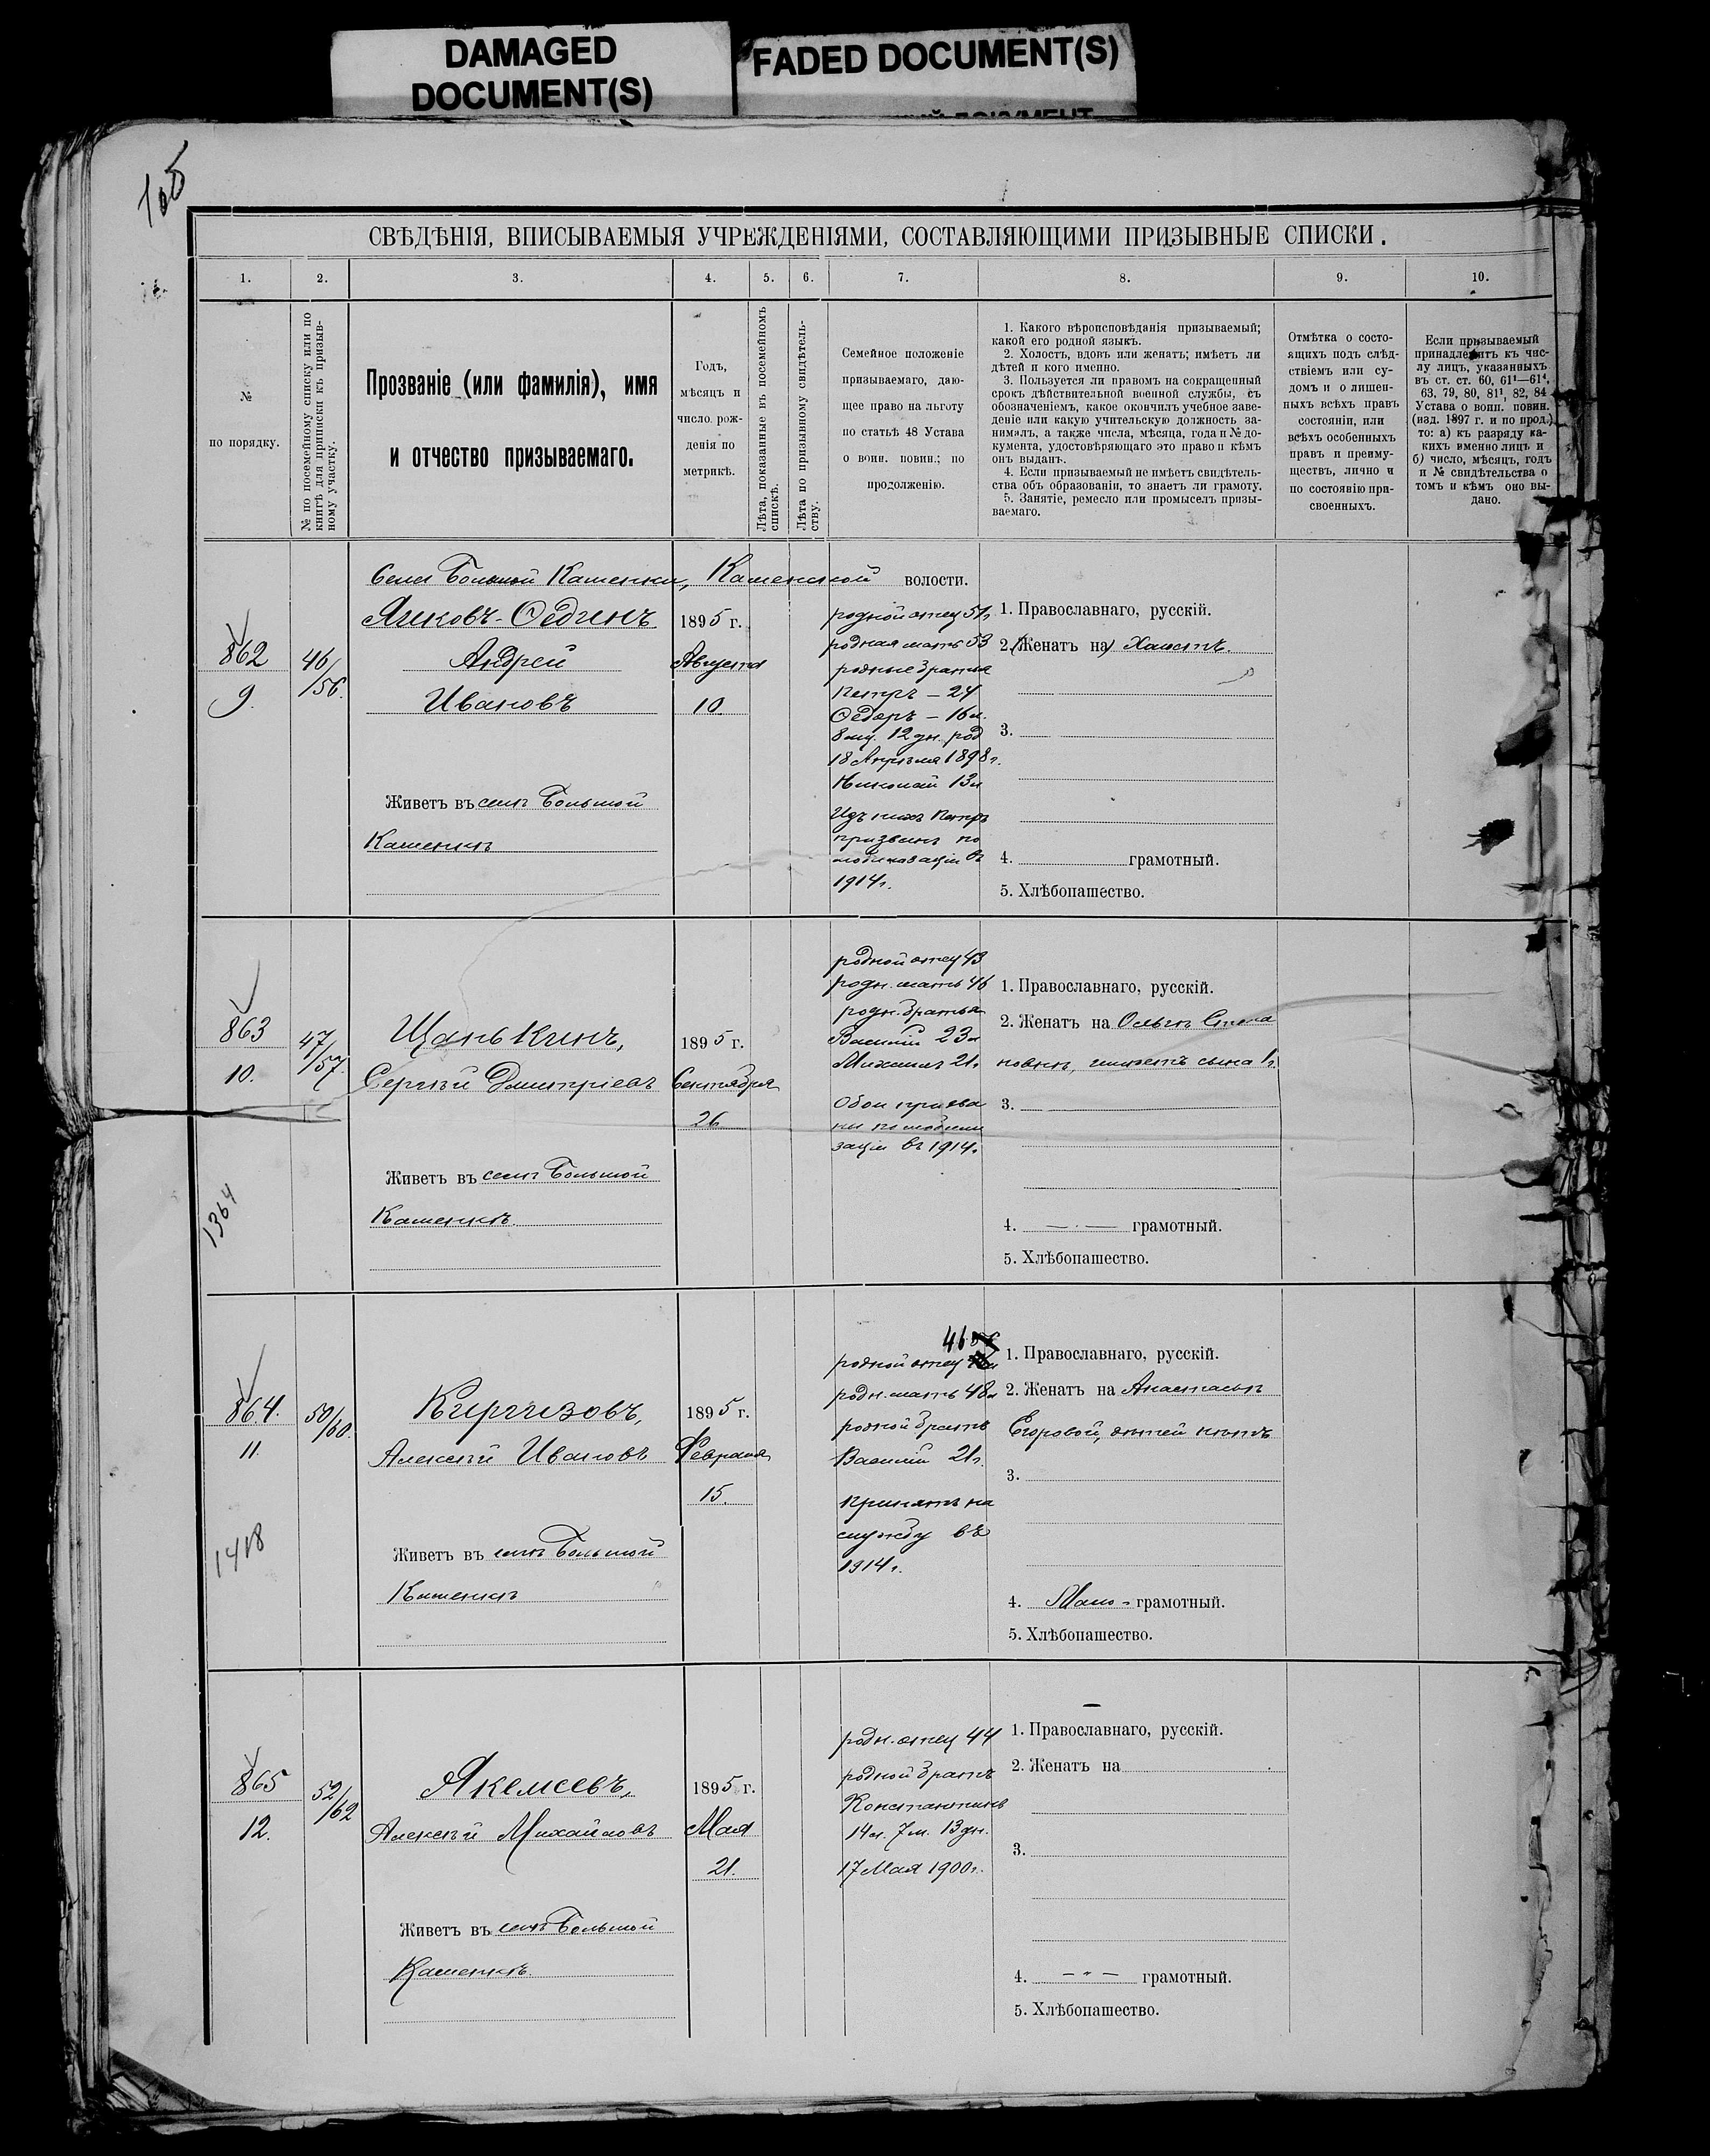 DAMAGED
DOCUMENT(S)
FADED DOCUMENT(S)
105
СВѢДѢНІЯ, ВПИСЫВАЕМЫЯ УЧРЕЖДЕНІЯМИ, СОСТАВЛЯЮЩИМИ ПРИЗЫВНЫЕ СПИСКИ.
1. 2. 3. 4. 5. 6. 7. 8. 9. 10.
№
по порядку.
№ по посемейному списку или по
книгѣ для приписки къ призыв-
ному участку.
Прозваніе (или фамилія), имя
и отчество призываемаго.
Годъ,
мѣсяцъ и
число рож-
денія по
метрикѣ.
Лѣта, показанные въ посемейномъ
спискѣ.
Лѣта по призывному свидѣтель-
ству.
Семейное положеніе
призываемаго, даю-
щее право на льготу
по статьѣ 48 Устава
о воин. повин.; по
продолженію.
1. Какого вѣроисповѣданія призываемый;
какой его родной языкъ.
2. Холостъ, вдовъ или женатъ; имѣетъ ли
дѣтей и кого именно.
3. Пользуется ли правомъ на сокращенный
срокъ дѣйствительной военной службы, съ
обозначеніемъ, какое окончилъ учебное заве-
деніе или какую учительскую должность за-
нималъ, а также числа, мѣсяца, года и № до-
кумента, удостовѣряющаго это право и кѣмъ
онъ выданъ.
4. Если призываемый не имѣетъ свидѣтель-
ства объ образованіи, то знаетъ ли грамоту.
5. Занятіе, ремесло или промыселъ призы-
ваемаго.
Отмѣтка о состо-
ящихъ подъ слѣд-
ствіемъ или су-
домъ и о лишен-
ныхъ всѣхъ правъ
состоянія, или
всѣхъ особенныхъ
правъ и преиму-
ществъ, лично и
по состоянію при-
своенныхъ.
Если призываемый
принадлежитъ къ чис-
лу лицъ, указанныхъ
въ ст. ст. 60, 61¹—61⁴,
63, 79, 80, 81¹, 82, 84
Устава о воин. повин.
(изд. 1897 г. и по прод.)
то: а) къ разряду ка-
кихъ именно лицъ и
б) число, мѣсяцъ, годъ
и № свидѣтельства о
томъ и кѣмъ оно вы-
дано.
Села Большой Каменки, Каменской волости.
862
9.
46/56.
Яшковъ-Фединъ
Андрей
Ивановъ
Живетъ въ селѣ Большой
Каменкѣ
1895 г.
Августа
10.
родной отец 51 л
родная мать 53
родные братья
Петръ – 24
Федоръ – 16 л.
8 мц. 12 дн. род
18 Апрѣля 1898 г.
Николай 13 л
Изъ нихъ Петръ
призванъ по
мобилизаціи въ
1914 г.
1. Православнаго, русскій.
2. (Женатъ на) Холостъ.
3.
4. грамотный.
5. Хлѣбопашество.
863
10.
47/57.
1364
Щанькинъ,
Сергѣй Дмитріевъ
Живетъ въ селѣ Большой
Каменкѣ
1895 г.
Сентября
26
родной отец 43
родн. мать 46
родн. братья
Василій 23 л
Михаилъ 21 л
Обои призва
ны по мобили
заціи въ 1914 г.
1. Православнаго, русскій.
2. Женатъ на Ольгѣ Степа
новнѣ, имѣетъ сына 1 г.
3.
4. — · — грамотный.
5. Хлѣбопашество.
864.
11.
50/60.
1418
Киргизовъ,
Алексѣй Ивановъ
Живетъ въ селѣ Большой
Каменкѣ
1895 г.
Февраля
15.
46
родной отец
родн. мать 48 л
родной братъ
Василій 21 г.
Принятъ на
службу въ
1914 г.
1. Православнаго, русскій.
2. Женатъ на Анастасьѣ
Егоровой, дѣтей нѣтъ
3.
4. Мало-грамотный.
5. Хлѣбопашество.
865
12.
52/62
Якемсевъ,
Алексѣй Михайловъ
Живетъ въ селѣ Большой
Каменкѣ.
1895 г.
Мая
21.
родн. отец 44
родной братъ
Константинъ
14 л. 7 м. 13 дн.
17 Мая 1900 г.
1. Православнаго, русскій.
2. Женатъ на
3.
4. — " — грамотный.
5. Хлѣбопашество.